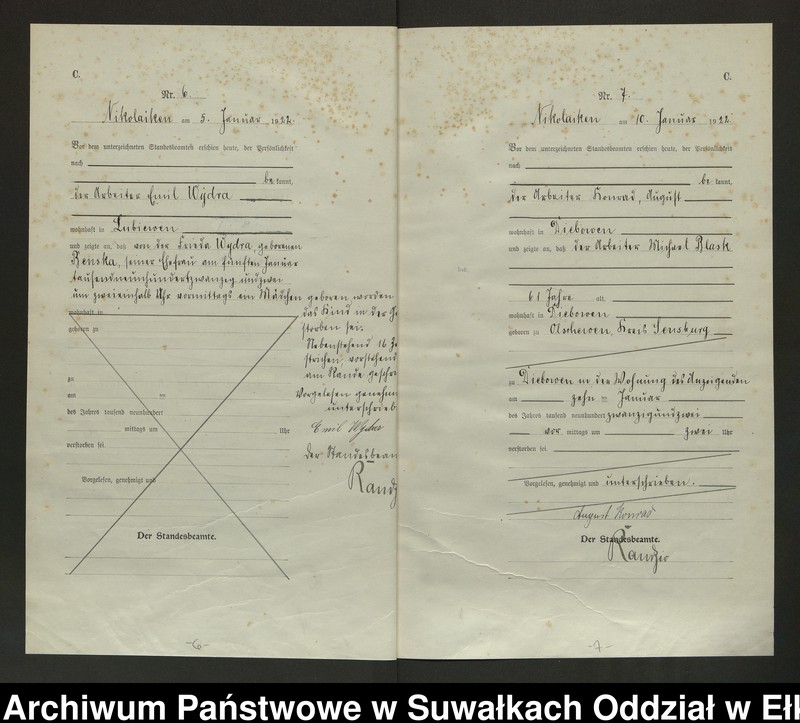 C.
Nr. 6
Nikolaiken am 5. Januar 1922.
Vor dem unterzeichneten Standesbeamten erschien heute, der Persönlichkeit
nach
be kannt,
der Arbeiter Emil Wydra
wohnhaft in Lubiewen
und zeigte an, daß von der Frieda Wydra, geborenen
Renska, seiner Ehefrau am fünften Januar
tausendneunhundertzwanzig und zwei
um zweieinhalb Uhr vormittags ein Mädchen geboren worden
wohnhaft in
das Kind in der
geboren zu
storben sei.
Nebenstehend 16
strichen, vorstehend
am Rande
zu
Vorgelesen genehm
am ten
unterschrieb
des Jahres tausend neunhundert
Emil Wydra
mittags um Uhr
verstorben sei
Der Standesbeam
Vorgelesen, genehmigt und
Der Standesbeamte.
-6-
C.
Nr. 7.
Nikolaiken am 10. Januar 1922.
Vor dem unterzeichneten Standesbeamten erschien heute, der Persönlichkeit
nach
be kannt,
der Arbeiter Konrad, August
wohnhaft in Diebowen
und zeigte an, daß der Arbeiter Michael Blask
61 Jahre alt,
wohnhaft in Diebowen
geboren zu Olschewen, Kreis Sensburg
zu Diebowen in der Wohnung des Anzeigenden
am zehn ten Januar
des Jahres tausend neunhundert zwanzigundzwei
vor mittags um zwei Uhr
verstorben sei.
Vorgelesen, genehmigt und unterschrieben.
August Konrad
Der Standesbeamte.
-7-
Archiwum Państwowe w Suwałkach Oddział w Eł